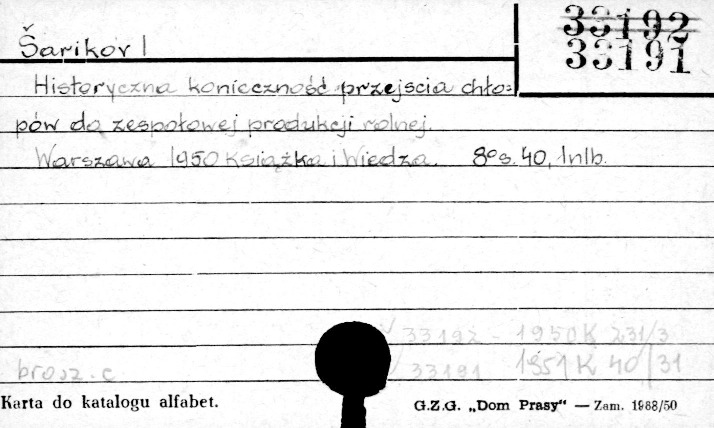 33192
33191
Šarikov I
Historyczna konieczność przejscia chło=
pów do zespołowej produkcji rolnej.
Warszawa 1950 Książka i Wiedza. 8° s. 40, 1nlb.
33192 - 1950 K 231/3
33191 1951 K 40/31
brosz. c
Karta do katalogu alfabet.
G.Z.G. „Dom Prasy“ — Zam. 1988/50